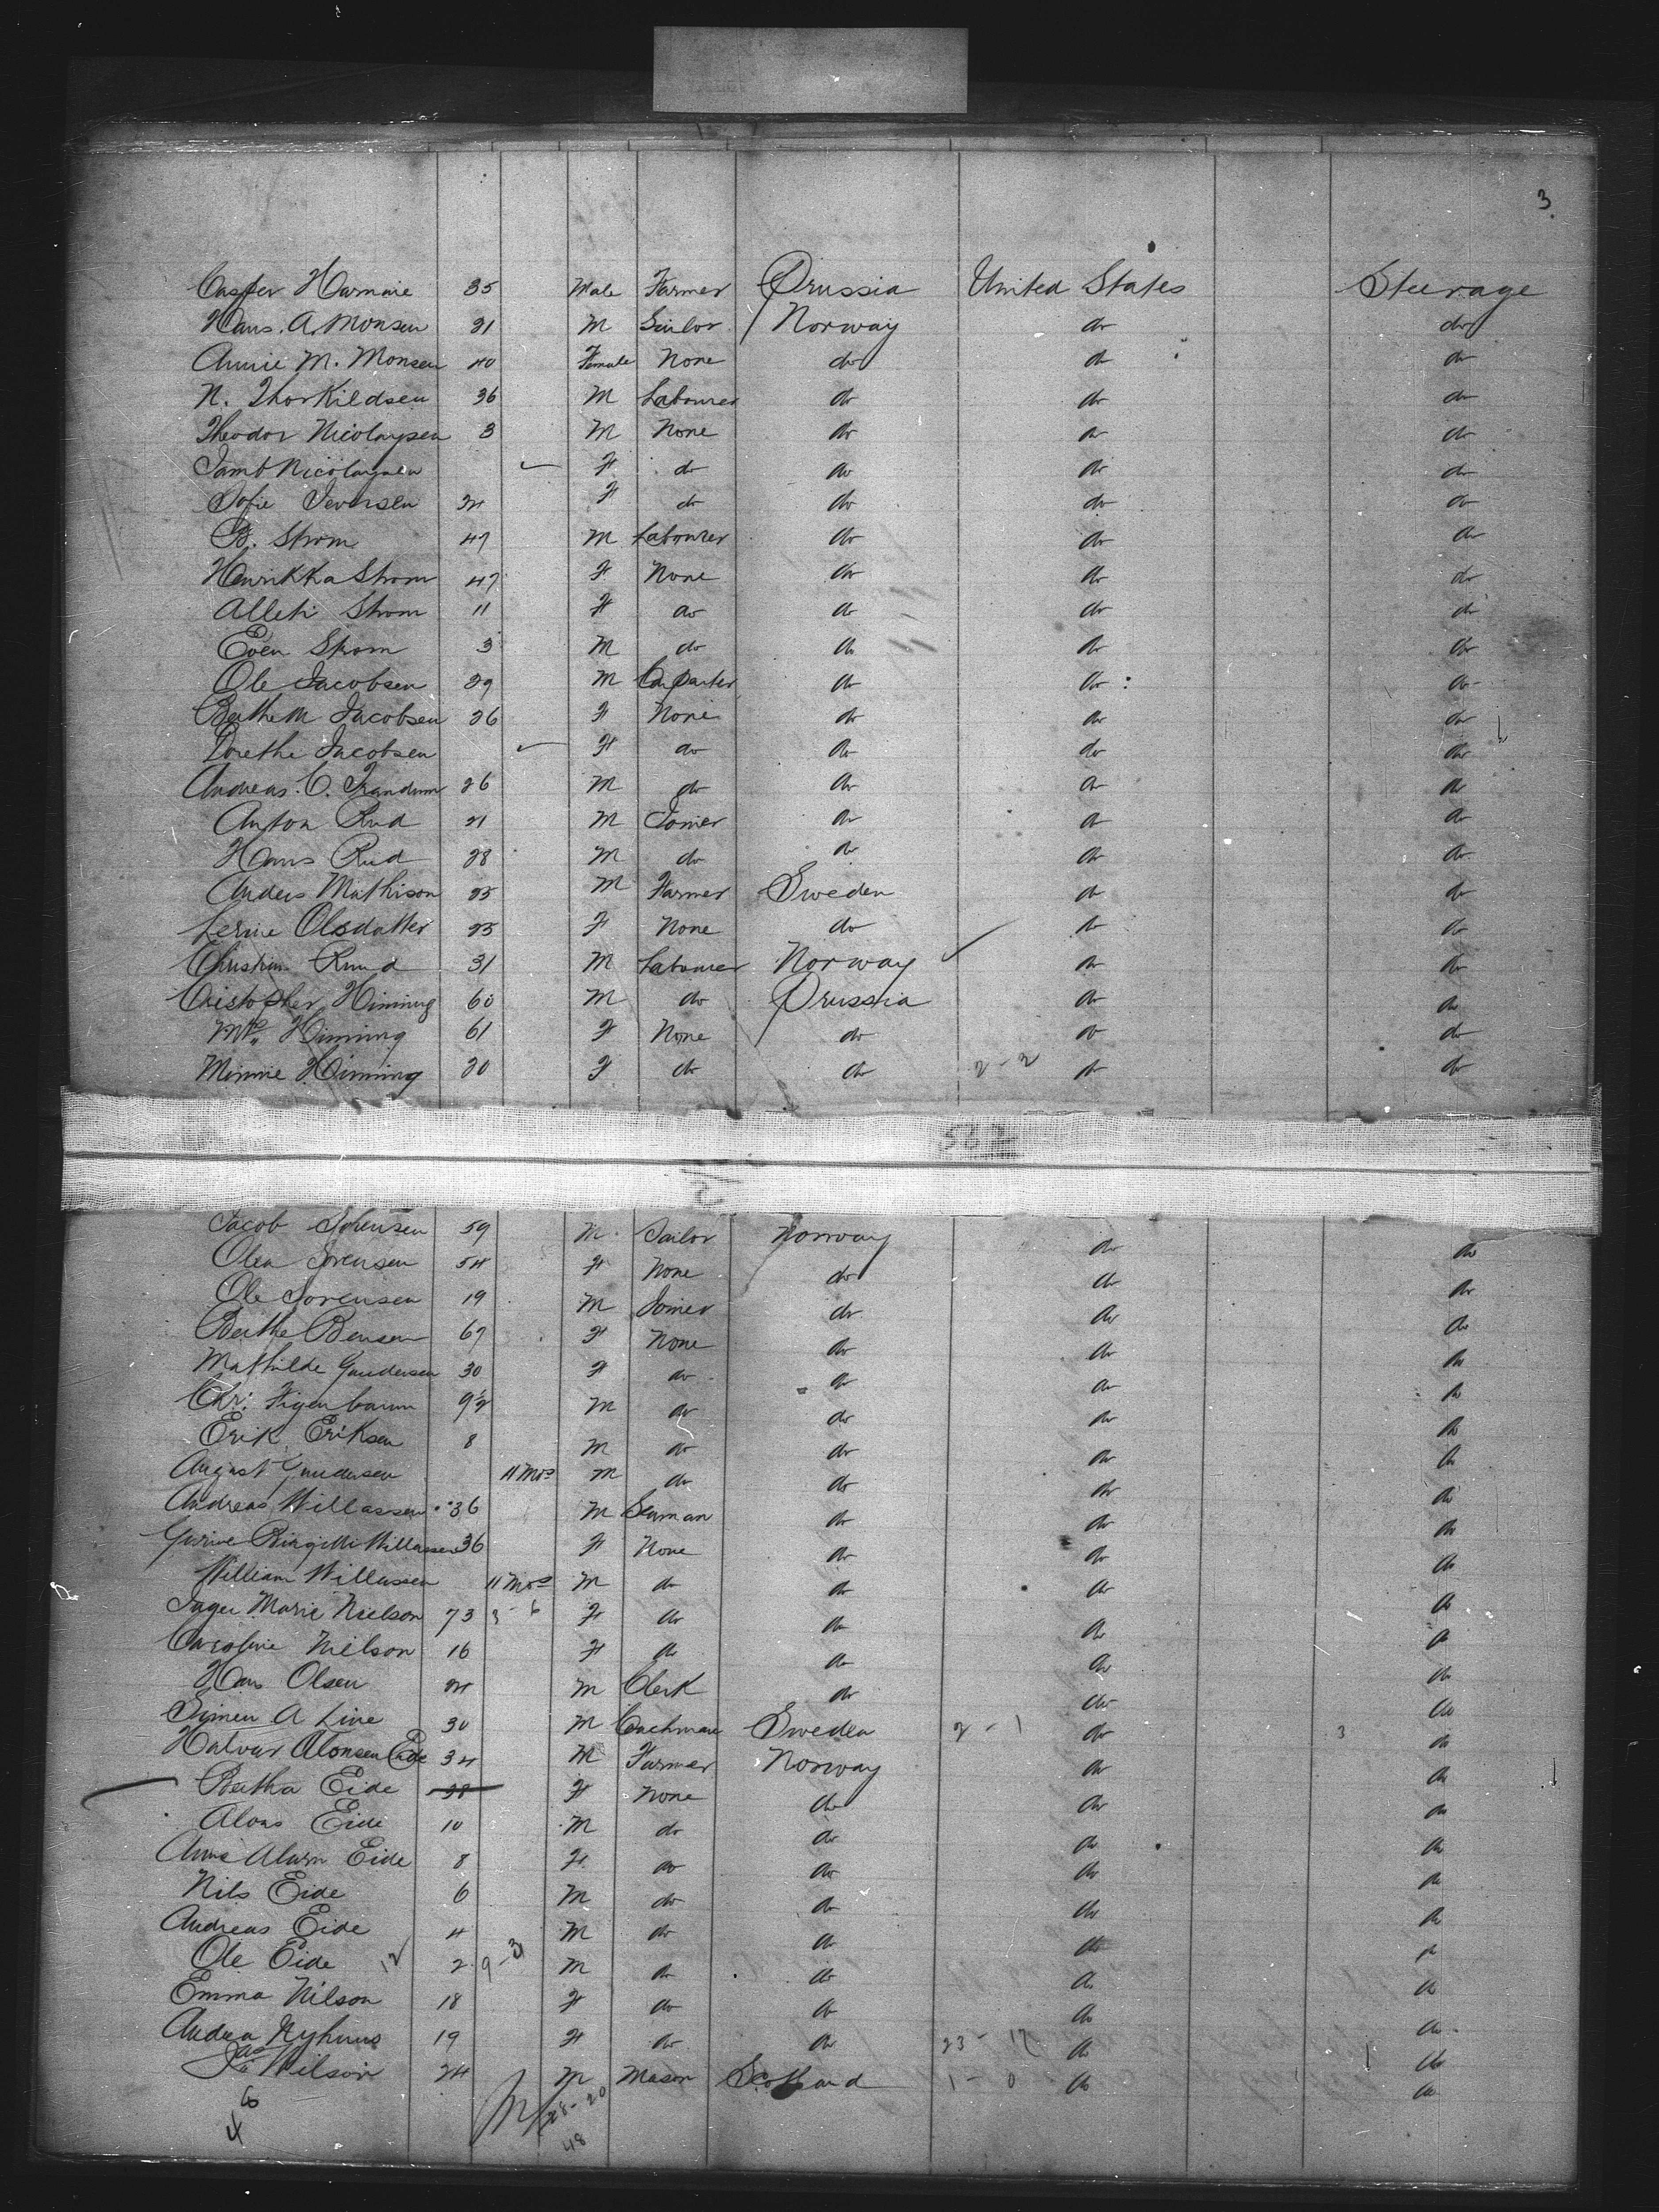 3
Casper Harmaie 35 Male Farmer Prussia United States Steerage
Hans. A. Monsen 31 M Sailor Norway do do
Annie M. Monsen 40 Female None do do do
N. Thorkildsen 36 M Labourer do do do
Theodor Nicolaysen 3 M None do do do
Nicolaysen F do do do do
Sofie Iversen 24 F do do do do
B. Strom 47 M Labourer do do do
Henrikka Strom 47 F None do do do
Alleti Strom 11 F do do do do
Even Strom 3 M do do do do
Ole Jacobsen 29 M Carpenter do do do
Berthe M Jacobsen 26 F None do do do
Dorethe Jacobsen F do do do do
Andreas. C. Trandum 26 M do do do do
Anton Rud 21 M Joiner do do do
Hans Rud 28 M do do do do
Anders Mathison 25 M Farmer Sweden do do
Lerine Olsdatter 25 F None do do do
Christian Ruud 31 M Labourer Norway do do
Cristopher Hinning 60 M do Prussia do do
Mrs. Hinning 61 F None do do do
Minnie Hinning 20 F do do 2-2 do do
562
Jacob Sorensen 59 M Sailor Norway do do
Olea Sorensen 54 F None do do do
Ole Sorensen 19 M Joiner do do do
Berthe Bensen 67 F None do do do
Mathilde Gundersen 30 F do do do do
Chr. Figenbaum 9½ M do do do do
Erik Eriksen 8 M do do do do
August Gundersen 11 Mos M do do do do
Andreas Willassen 36 M Seaman do do do
Gurine Birgitte Willassen 36 F None do do do
William Willassen 11 Mos M do do do do
Inger Marie Nielson 73 3-6 F do do do do
Caroline Nielson 16 F do do do do
Hans Olsen 24 M Clerk do do do
Simen A Line 30 M Coachman Sweden 2-1 do 3 do
Halvar Alonsen Eide 34 M Farmer Norway do do
Bertha Eide 38 F None do do do
Alons Eide 10 M do do do do
Anne Eide 8 F do do do do
Nils Eide 6 M do do do do
Andreas Eide 4 M do do do do
Ole Eide 12 2 9-3 M do do do do
Emma Nilson 18 F do do do do
Andrea Nyhuus 19 F do do 23-12 do do
Jas Wilson 24 M Mason Scotland 1-0 do do
6
4
28-20
48